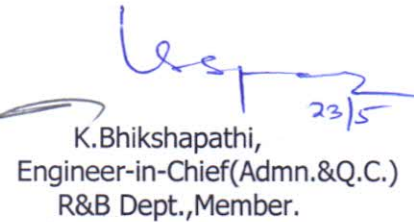 23/5
K.Bhikshapathi,
Engineer-in-Chief(Admn.&Q.C.)
R&B Dept.,Member.